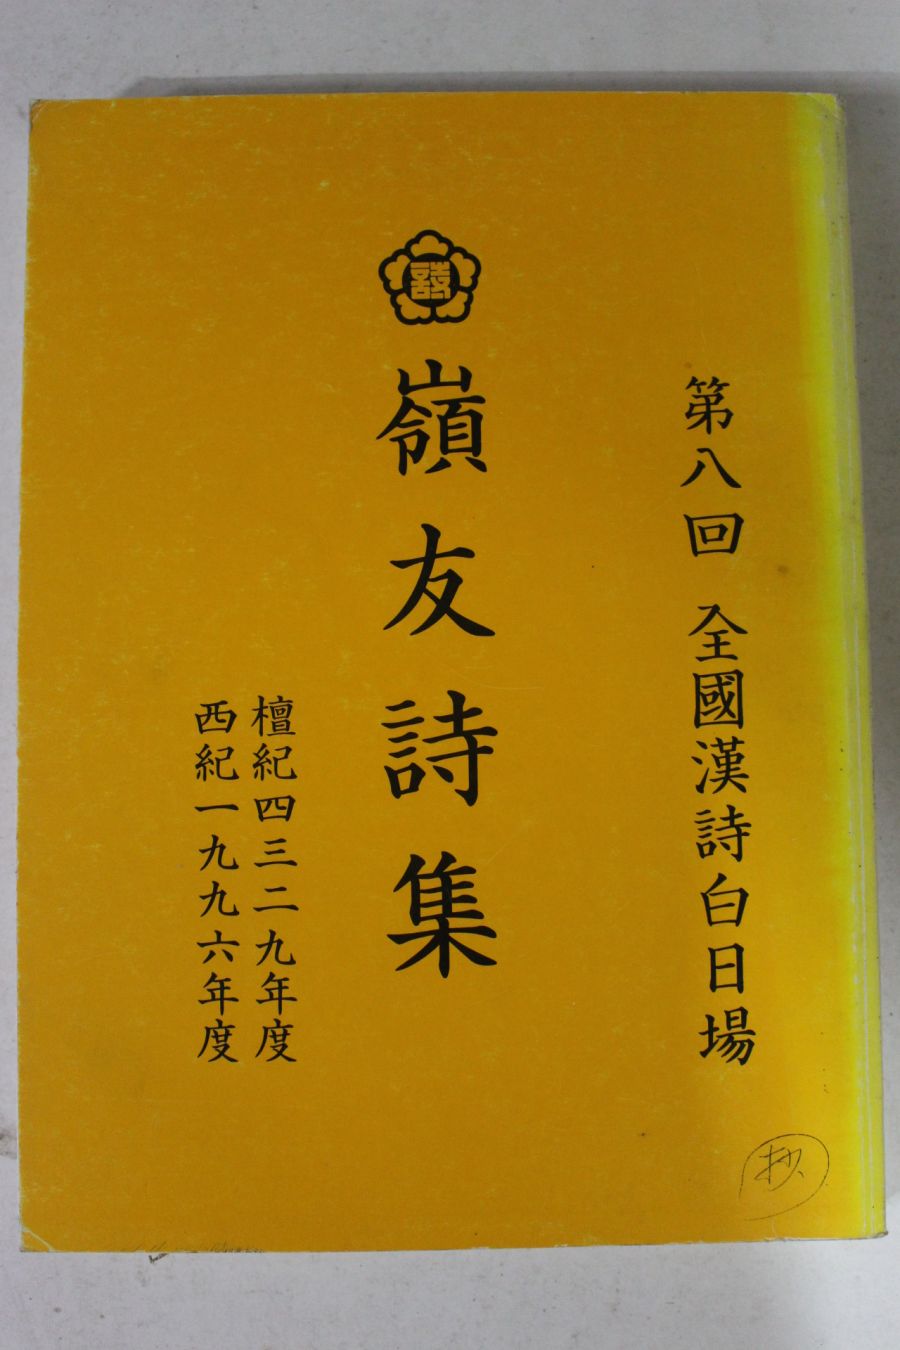 第八回 全國漢詩白日場
嶺友詩集
檀紀四三二九年度
西紀一九九六年度
抄